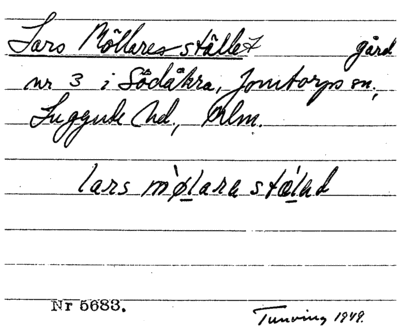 Lars Möllares stället gård
nr 3 i Södåkra, Jonstorps sn,
Luggude hd, Mlm.
lars mø̀lara stælad
Nr 5683.
Tunving 1949.